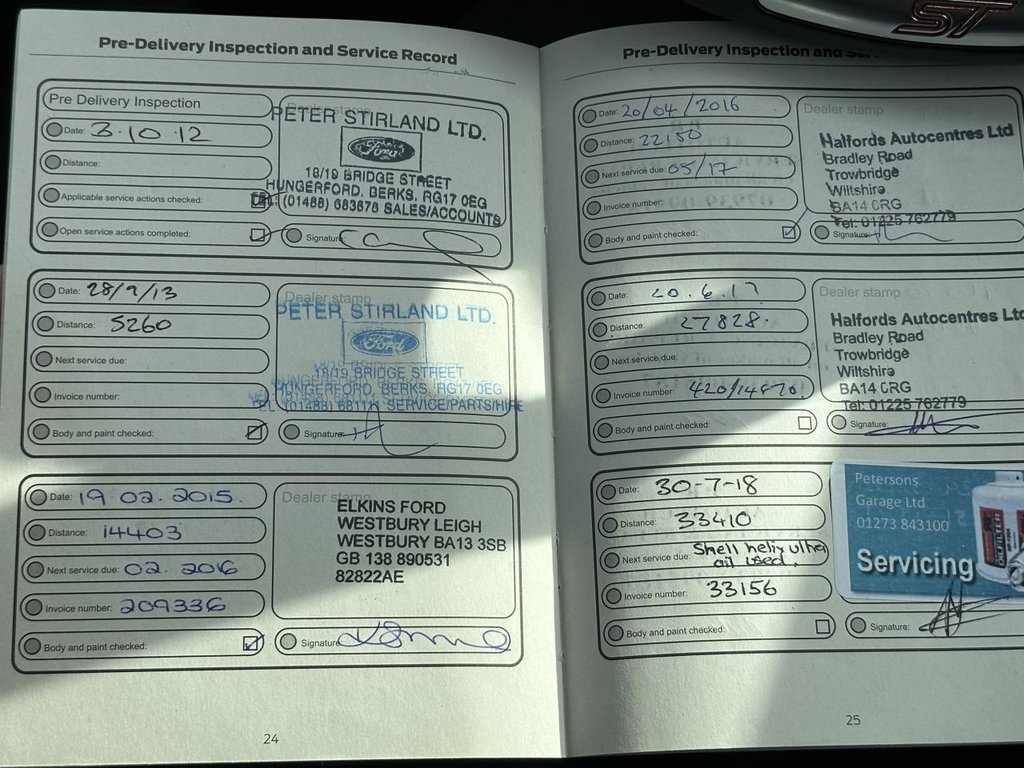 Pre-Delivery Inspection and Service Record
Pre Delivery Inspection
Date: 3.10.12
Distance:
Applicable service actions checked:
Open service actions completed:
Dealer stamp
PETER STIRLAND LTD.
Ford
18/19 BRIDGE STREET
HUNGERFORD, BERKS, RG17 0EG
TEL: (01488) 683678 SALES/ACCOUNTS
Signature
Date: 28/9/13
Distance: 5260
Next service due:
Invoice number:
Body and paint checked:
Dealer stamp
PETER STIRLAND LTD.
Ford
18/19 BRIDGE STREET
HUNGERFORD, BERKS, RG17 0EG
TEL (01488) 681111 SERVICE/PARTS/HIRE
Signature
Date: 19.02.2015.
Distance: 14403
Next service due: 02.2016
Invoice number: 209336
Body and paint checked:
Dealer stamp
ELKINS FORD
WESTBURY LEIGH
WESTBURY BA13 3SB
GB 138 890531
82822AE
Signature
24
ST
Pre-Delivery Inspection and
Date: 20/04/2016
Distance: 22150
Next service due: 05/17
Invoice number:
Body and paint checked:
Dealer stamp
Halfords Autocentres Ltd
Bradley Road
Trowbridge
Wiltshire
BA14 0RG
Tel: 01225 762779
Signature:
Date: 20.6.17
Distance: 27828.
Next service due:
Invoice number: 420/14870
Body and paint checked:
Dealer stamp
Halfords Autocentres Ltd
Bradley Road
Trowbridge
Wiltshire
BA14 0RG
Tel: 01225 762779
Signature:
Date: 30-7-18
Distance: 33410
Next service due: Shell helix ultra
oil used.
Invoice number: 33156
Body and paint checked:
Petersons
Garage Ltd
01273 843100
Servicing
OIL FILTER
Signature:
25